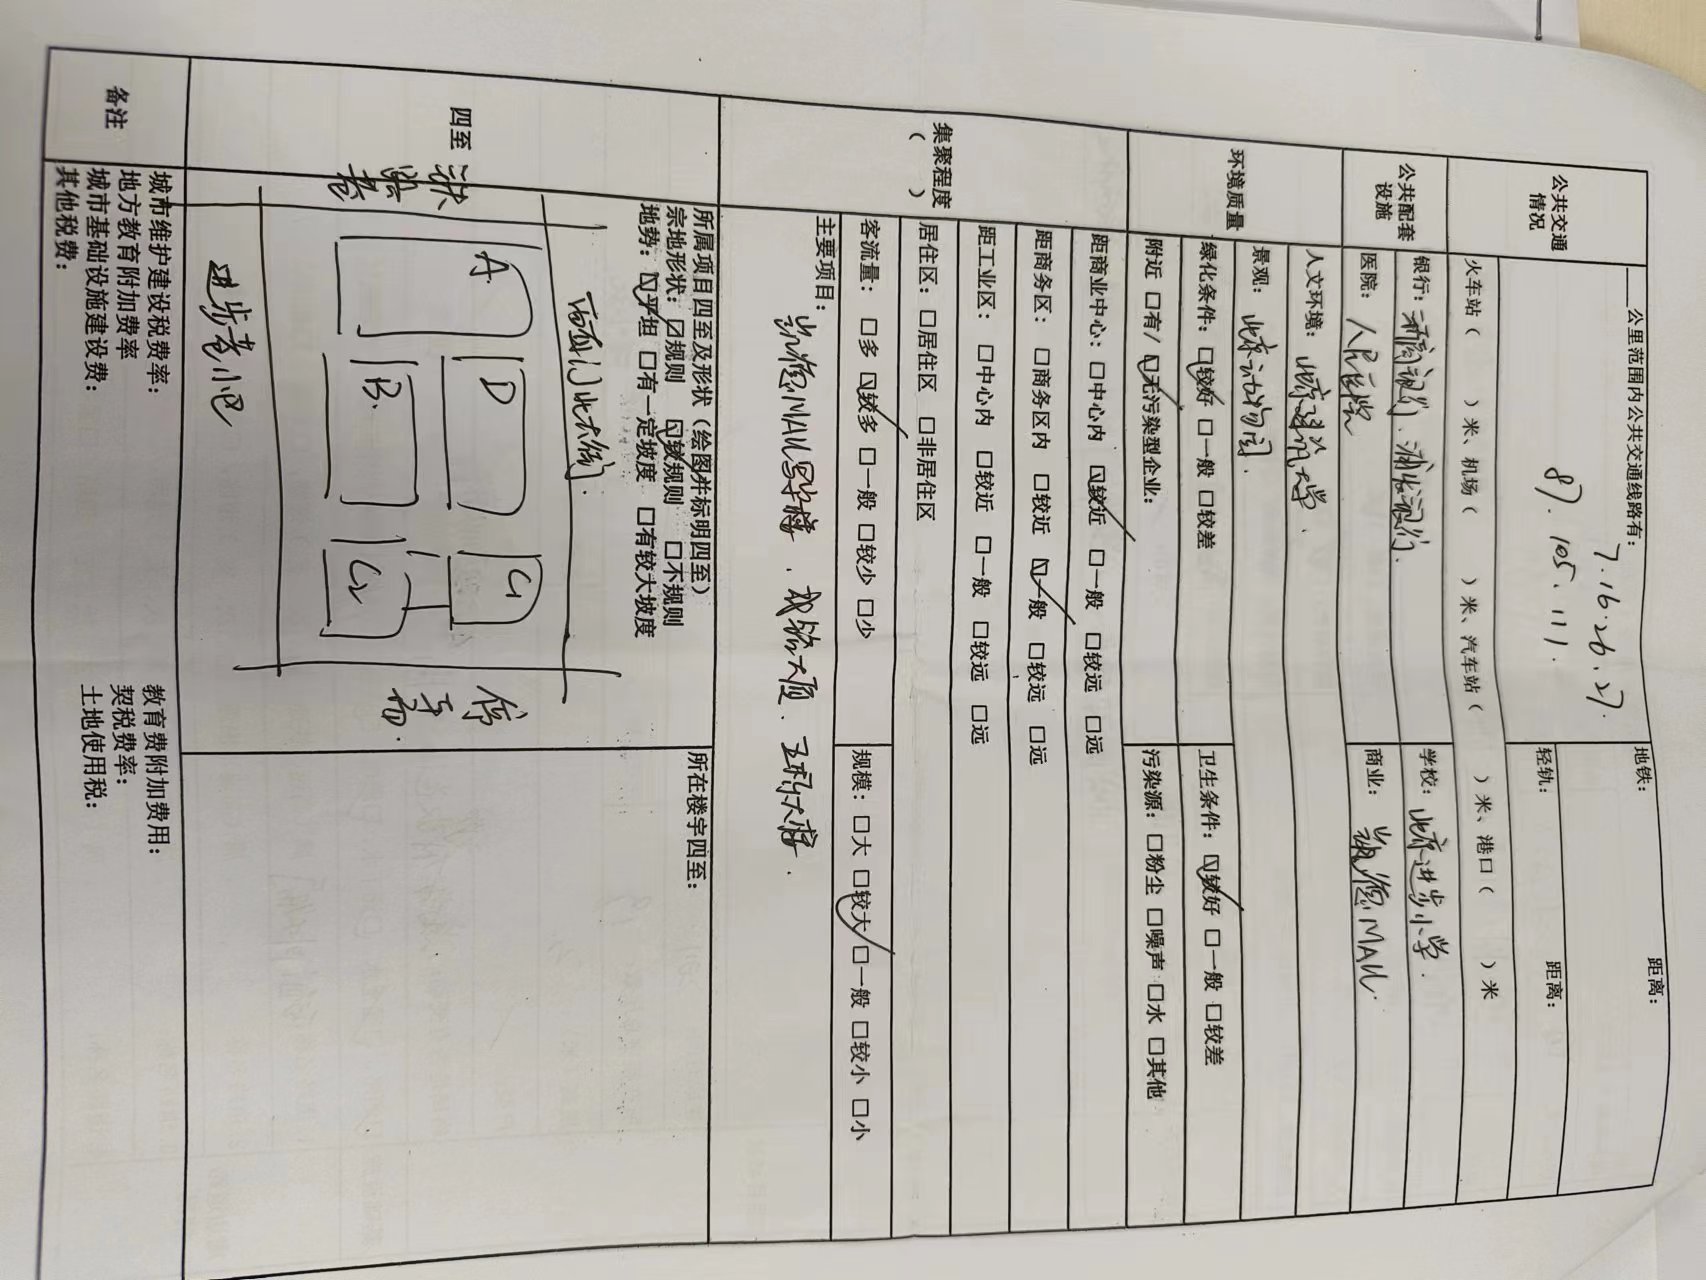 公共交通情况
___公里范围内公共交通线路有：
7.16.26.27.
87.105.111.
地铁： 距离：
轻轨： 距离：
火车站（ ）米、机场（ ）米、汽车站（ ）米、港口（ ）米
公共配套设施
银行： 学校：北京进步小学.
医院：人民医院 商业：凯德MALL.
环境质量
人文环境：北京建筑大学.
景观：北京动物园.
绿化条件：☑较好 □一般 □较差 卫生条件：☑较好 □一般 □较差
附近 □有/ ☑无污染型企业： 污染源：□粉尘 □噪声 □水 □其他
集聚程度（ ）
距商业中心：□中心内 ☑较近 □一般 □较远 □远
距商务区：□商务区内 □较近 ☑一般 □较远 □远
距工业区：□中心内 □较近 □一般 □较远 □远
居住区：□居住区 □非居住区
客流量：□多 ☑较多 □一般 □较少 □少 规模：□大 ☑较大 □一般 □较小 □小
主要项目：凯德MALL写字楼. 成铭大厦. 大楼.
四至
所属项目四至及形状（绘图并标明四至） 所在楼宇四至：
宗地形状：☑规则 ☑较规则 □不规则
地势：☑平坦 □有一定坡度 □有较大坡度
西直门北大街.
A
D
C1
B.
C2
停车场.
进步巷小区
备注
城市维护建设税费率： 教育费附加费用：
地方教育附加费率 契税费率：
城市基础设施建设费： 土地使用税：
其他税费：